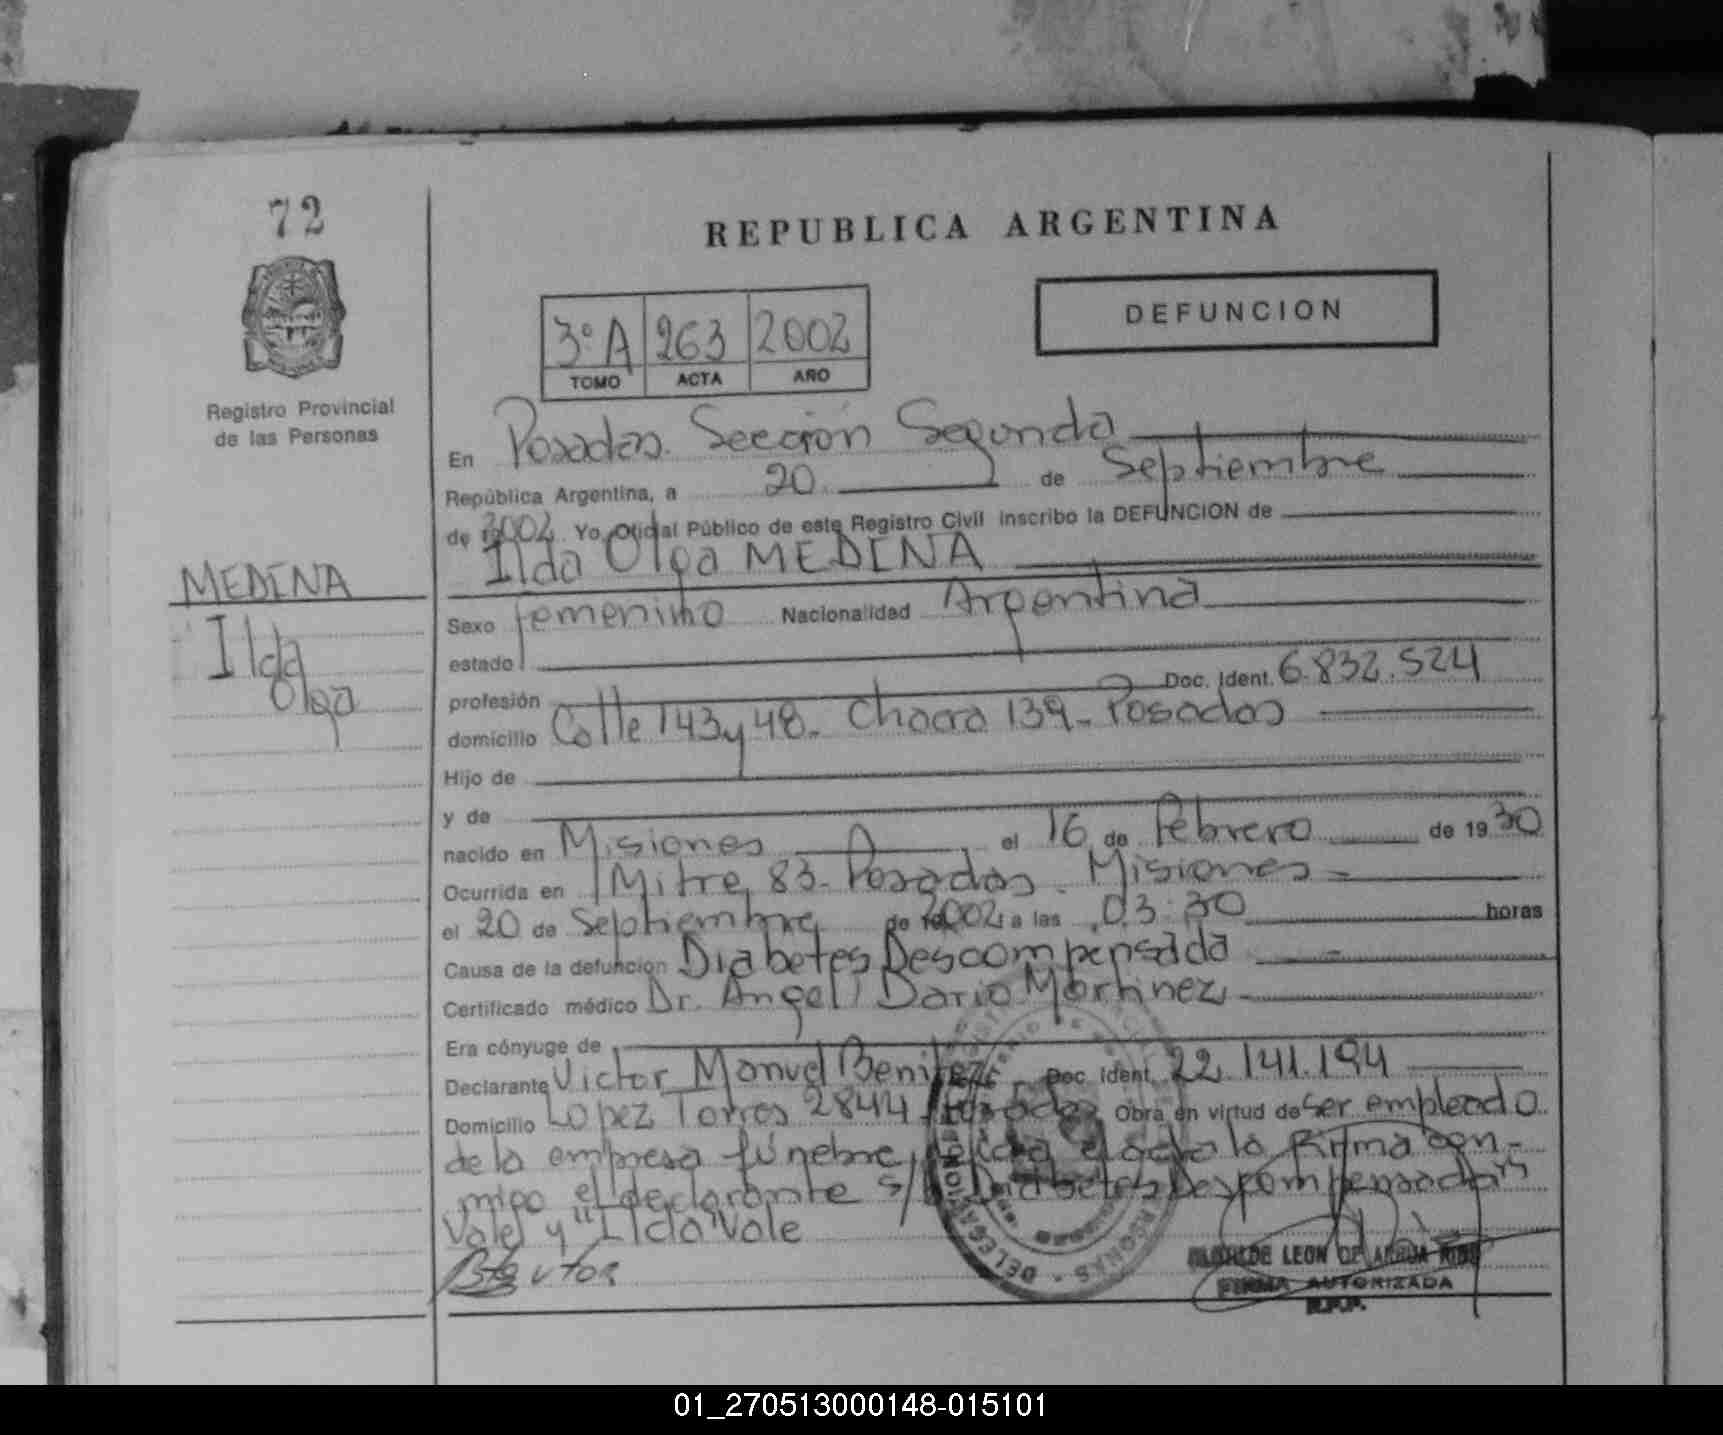 72
REPUBLICA ARGENTINA
DEFUNCION
3º A 263 2002
TOMO ACTA AÑO
Registro Provincial
de las Personas
En Posadas. Sección Segunda
República Argentina, a 20 de Septiembre
de 2002 Yo Oficial Público de este Registro Civil inscribo la DEFUNCION de
Ilda Olga MEDINA
MEDINA
Ilda
Olga
Sexo femenino Nacionalidad Argentina
estado
profesión Doc. Ident. 6.832.524
domicilio Calle 143 y 48. Chacra 139- Posadas
Hijo de
y de
nacido en Misiones el 16 de Febrero de 1930
Ocurrida en Mitre 83- Posadas - Misiones -
el 20 de Septiembre de 2002 a las 03:30 horas
Causa de la defunción Diabetes Descompensada
Certificado médico Dr. Angel Dario Martinez
Era cónyuge de
Declarante Victor Manuel Benitez Doc. Ident. 22.141.194
Domicilio Lopez Torres 2844 Posadas Obra en virtud de Ser empleado
de la empresa fúnebre, leída el acta la firma con-
migo el declarante s/ "Diabetes Descompensada"
Vale y "Ilda" Vale
LEON DE
FIRMA AUTORIZADA
R.P.P.
01_270513000148-015101